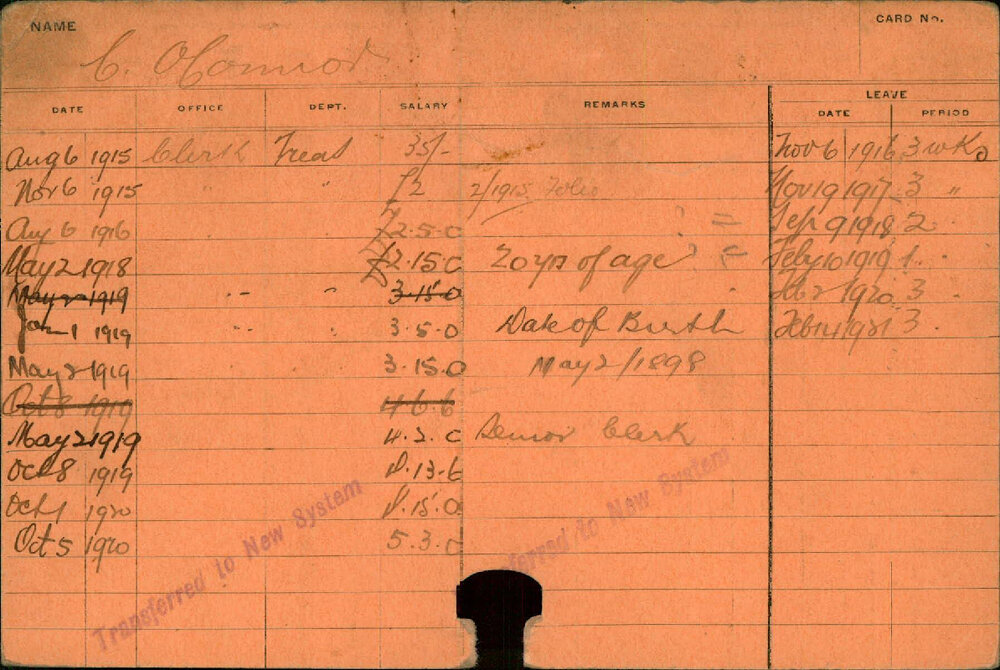 NAME
CARD No.
C. O'Connor
DATE OFFICE DEPT. SALARY REMARKS LEAVE
DATE PERIOD
Aug 6 1915 Clerk Treas 35/- Nov 6 1916 3 wks
Nov 6 1915 " " £2 2/1915 Folio Nov 19 1917 3 "
Aug 6 1916 " " £2.5.0 Sep 9 1918 2 "
May 2 1918 £2.15.0 20 yrs of age Feby 10 1919 1 "
May 2 1919 " " 3.15.0 Feb 2 1920 3 "
Jan 1 1919 " " 3.5.0 Date of Birth Feb 14 1921 3 "
May 2 1919 3.15.0 May 2/1898
Oct 8 1919 4.6.6
May 2 1919 4.2.0 Senior Clerk
Oct 8 1919 4.13.6
Oct 1 1920 4.15.0
Oct 5 1920 5.3.0
Transferred to New System
ferred to New System